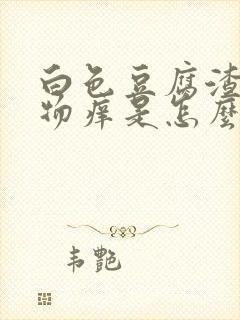 白色豆腐渣
物痒是怎麼
韦艷